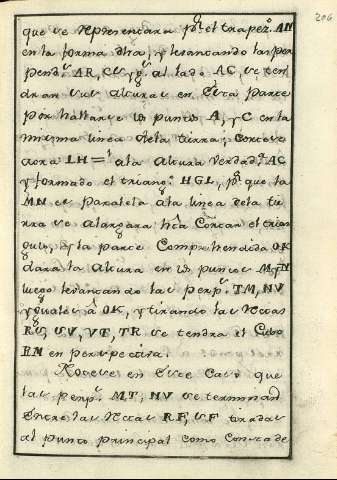 206
que se representara pr. el trapez. AN
en la forma dha, y levantando las per
pend.s AR, CS y g.s al lado AC, se ten
dran sus alturas en esta parte
por hallarse los puntos A, y C en la
misma linea dela tierra; Cortese
aora LH= ala altura verdad.a AC
y formado el triang.o HGL, pr. que la
MN es Paralela ala linea dela tie
rra se alargara hta Cortar el trian
gulo, y la parte Comprehendida OK
dara la altura en los puntos M, y N
luego levantando las perp.s TM, NV
yguales á OK, y tirando las Rectas
RS, SV, VT, TR se tendra el Cubo
RM en perspectiva.
Notese en este Caso que
las perp.s MT, NV se terminan
Entre las Rectas RF, SF tiradas
al punto principal como Consta de